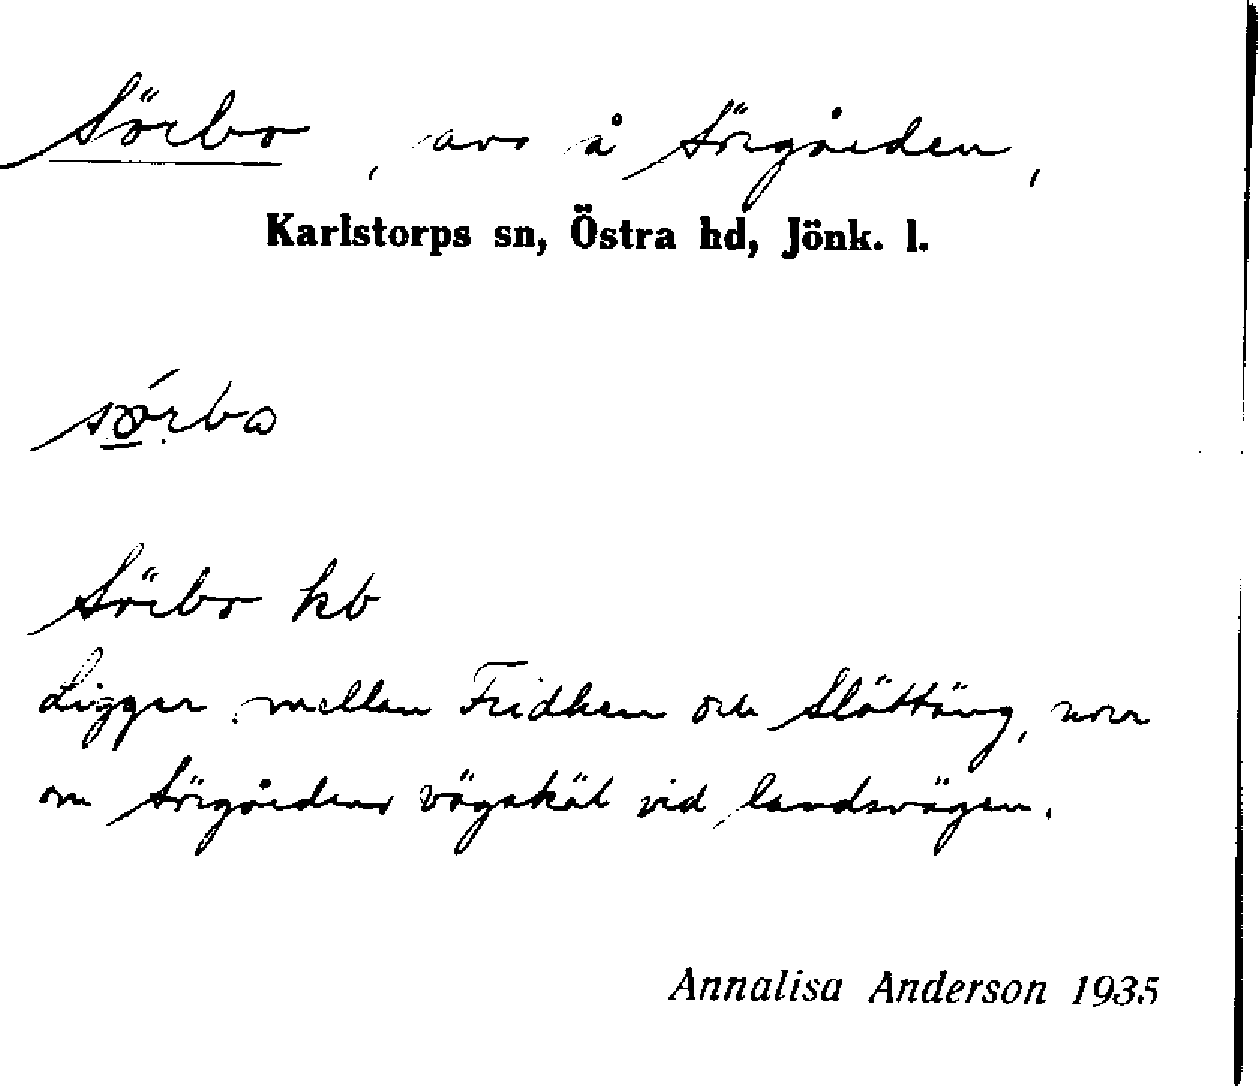 Sörbo, avs å Sörgården,
Karlstorps sn, Östra hd, Jönk. l.
Sörbo hb
Ligger mellan Fridhem och Slättäng, norr
om Sörgårdens vägskäl vid landsvägen.
Annalisa Anderson 1935